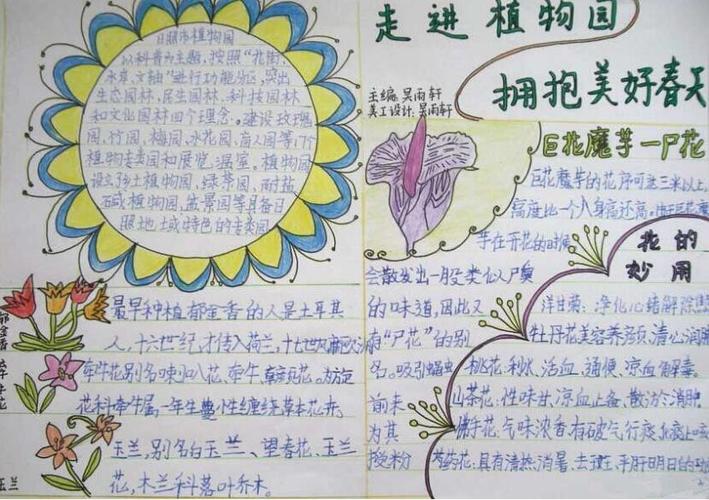 日照市植物园
以科普为主题，按照“花街、
水岸、文轴”进行功能分区，突出
生态园林、民生园林、科技园林
和文化园林四个理念。建设玫瑰
园、竹园、梅园、水花园、盲人园等17个
植物专类园和展览、温室。植物园
设立了乡土植物园、绿茶园、耐盐
碱植物园、盆景园等具备日
照地域特色的专类园
最早种植郁金香的人是土耳其
人，十六世纪，才传入荷兰，十七世纪
郁金香
牵牛花别名喇叭花、牵牛、朝颜花。为旋
花科牵牛属一年生蔓性缠绕草本花卉。
牵牛花
玉兰，别名白玉兰、望春花、玉兰
花，木兰科落叶乔木。
玉兰
走进植物园
拥抱美好春天
主编：吴雨轩
美工设计：吴雨轩
巨花魔芋一尸花
巨花魔芋的花序可达三米以上，
高度比一个人身高还高。
芋在开花的时候
会散发出一股类似尸臭
的味道，因此又
有“尸花”的别
名。吸引蝇虫
前来
为其
授粉
花的
妙用
洋甘菊：净化心绪解除
牡丹花美容养颜，清心润肺
桃花：利水、活血、通便、凉血解毒。
山茶花：性味甘、凉血止血、散淤消肿
佛手花：气味浓香，有破气行
芍药花：具有清热、消暑、去斑、平肝明目的功